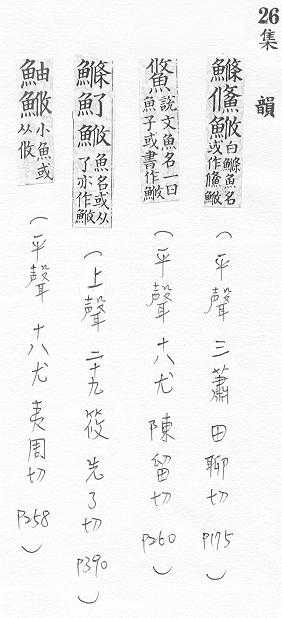 26集韻
鰷 白鰷魚名
或作
(平聲 三蕭 田聊切 P175)
鮗 說文魚名一曰
魚子或書作
(平聲 十八尤 陳留切 P260)
鰷 魚名或从
了亦作
(上聲 二十九筱 先了切 P390)
鮋 小魚或
从攸
(平聲 十八尤 夷周切 P258)